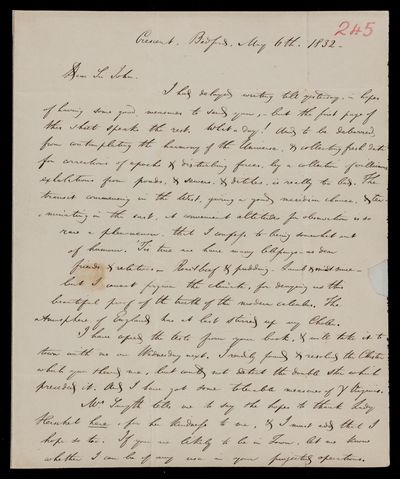 245
Crescent, Bedford, May 6th. 1832 -
Dear Sir John.
I had delayed writing till yesterday, in hopes
of having some good measures to send you, - but the first page of
this sheet speaks the rest. What a day! And to be debarred,
from contemplating the harmony of the Universe, & collecting fresh data
for corrections of epochs & disturbing forces, by a collection of villainous
exhalations from ponds, & sewers, & ditches, is really too bad. The
transit commencing in the West, giving a good meridian chance, & ter-
minating in the east, at convenient altitudes for observation is so
rare a phenomenon, that I confess to being somewhat out
of humour. 'Tis true we have many
friends & relations - Roast beef & pudding -
but I cannot forgive the climate, for denying us this
beautiful proof of the truth of the modern calculus. The
Atmosphere of England has at last stirred up my Choler.
I have copied the tests from your book, & will take it to
town with me on Wednesday next. I readily found & resolved the
which you showed me, but could not detect the double star which
preceded it. And I have got some tolerable measures of γ Virginis.
Mrs Smyth tells me to say she hopes to thank Lady
Herschel here, for her kindness to me, & I must add that I
hope so too. If you are likely to be in Town, let me know
whether I can be of any use in your projected operations.